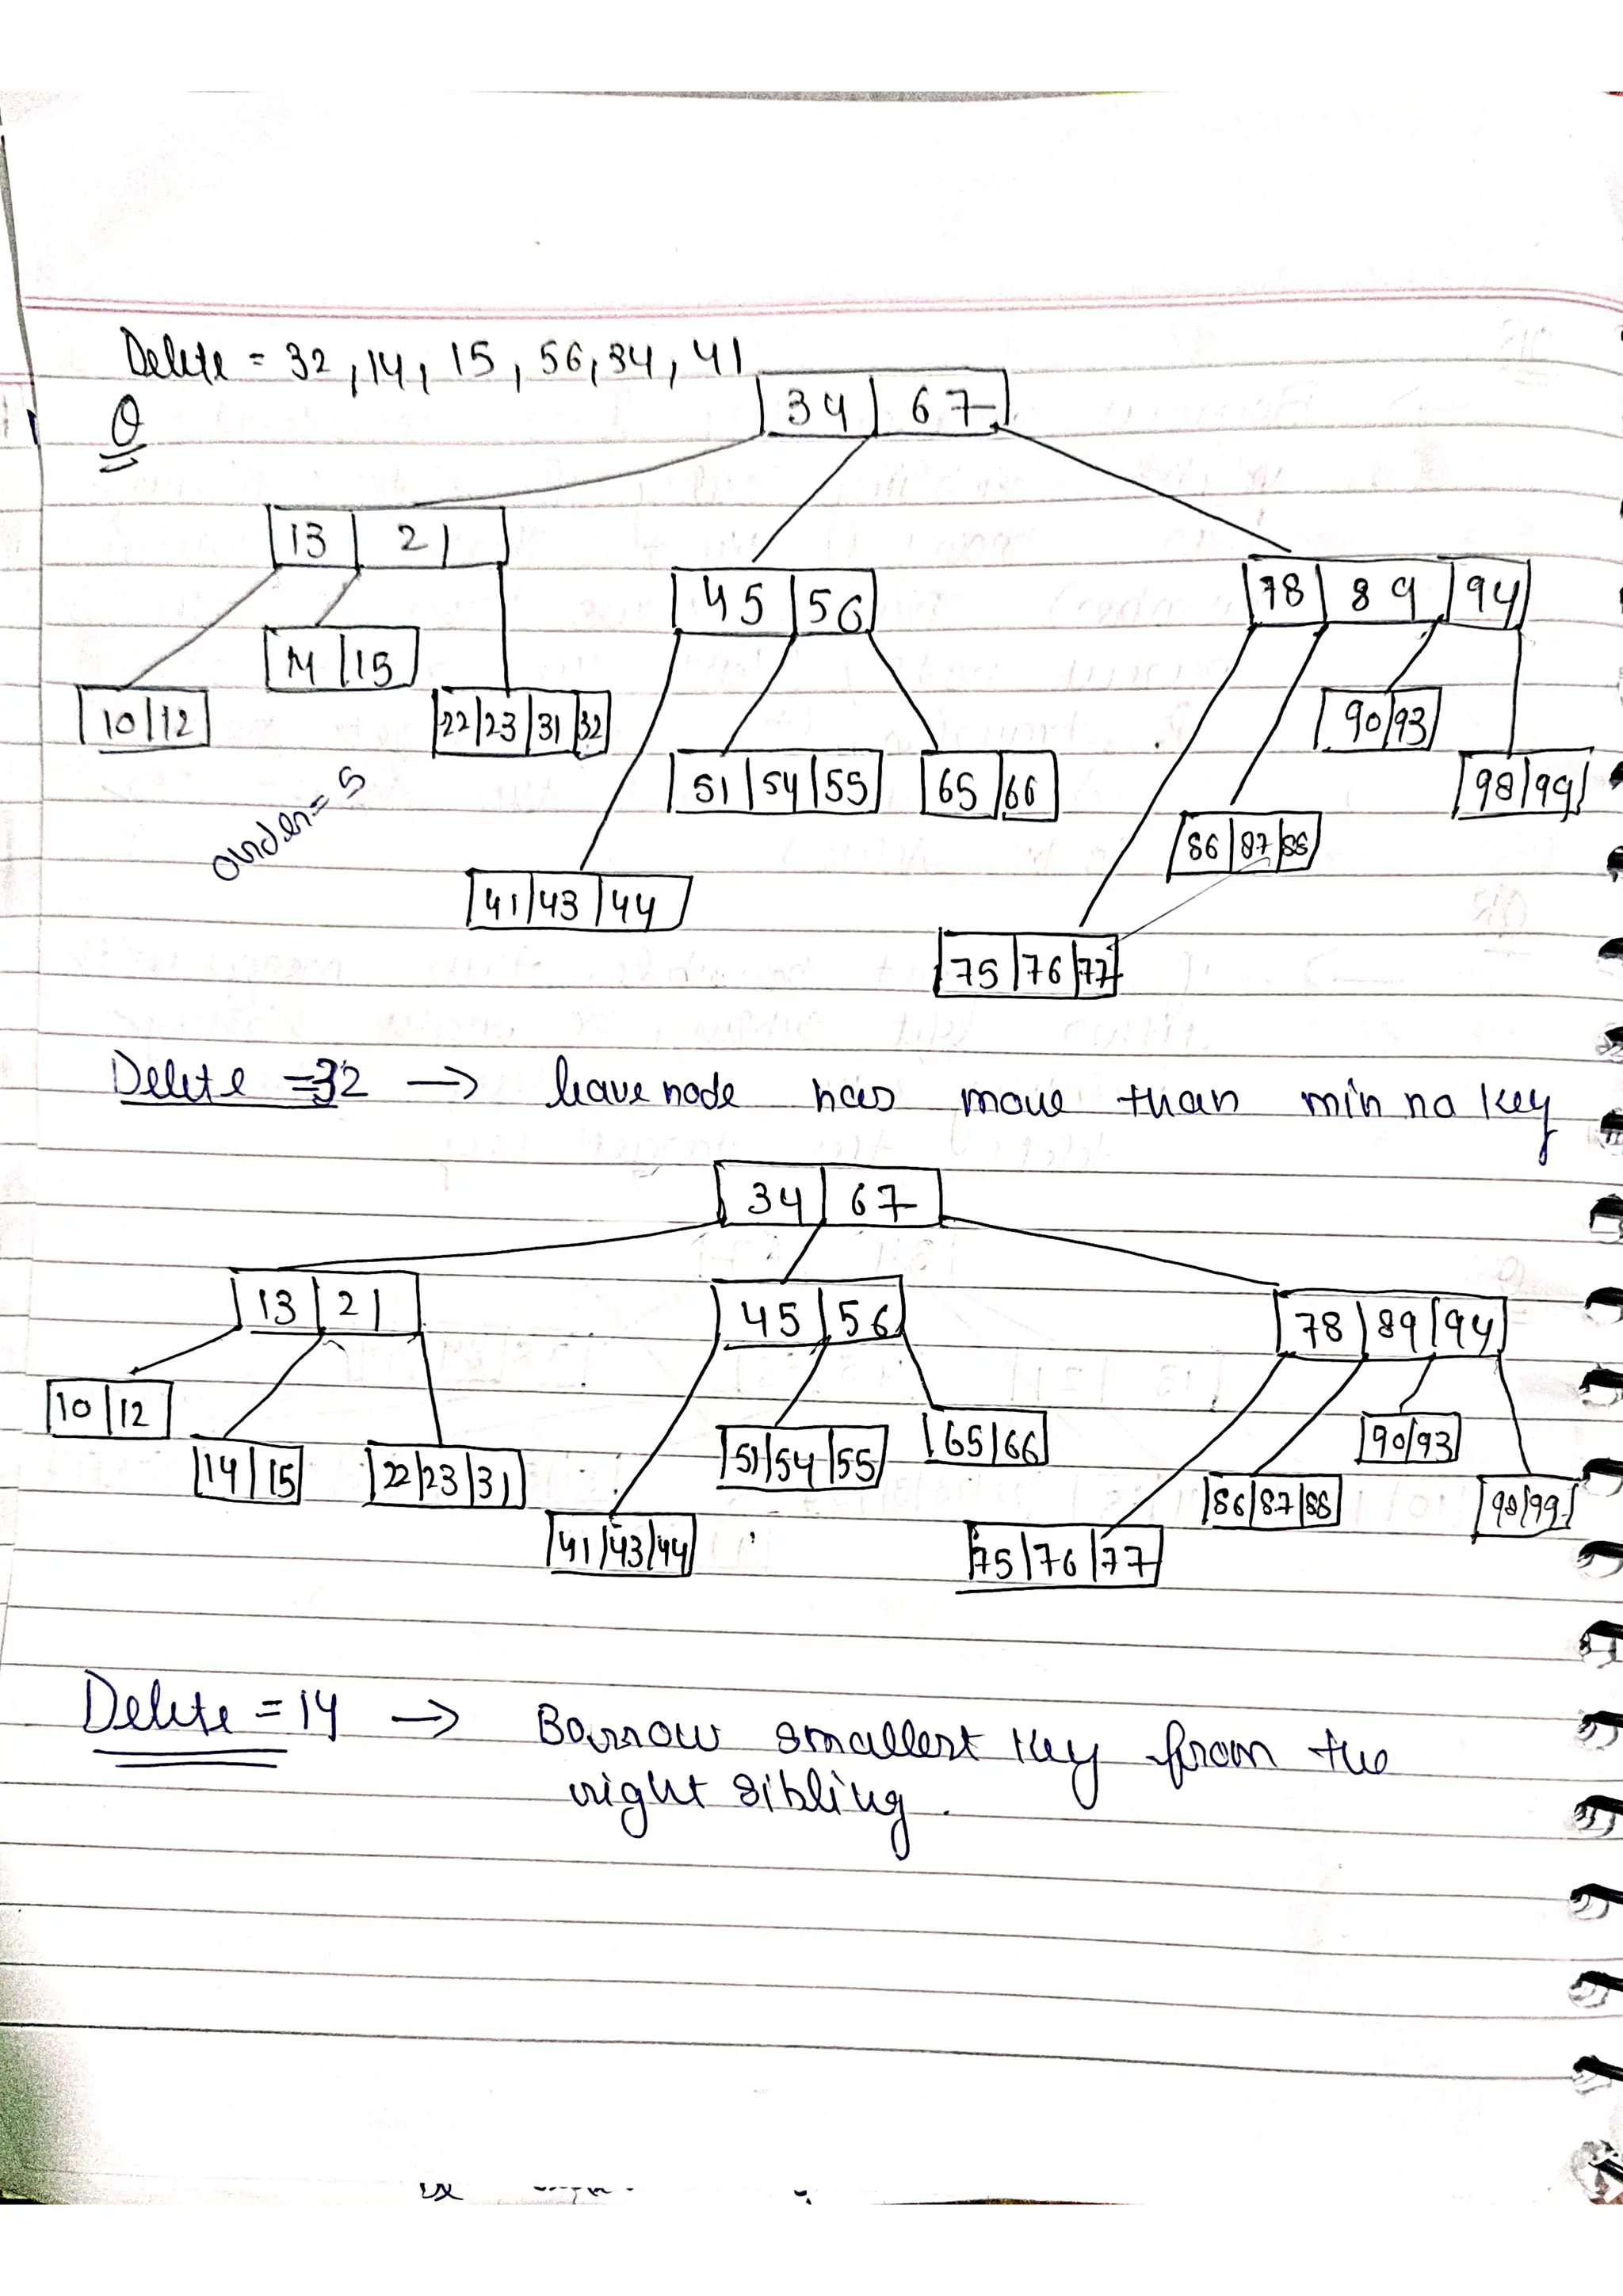 Delete = 32, 14, 15, 56, 34, 41
Q
34 | 67
13 | 21
45 | 56
78 | 89 | 94
14 | 15
10 | 12
22 | 23 | 31 | 32
90 | 93
51 | 54 | 55
65 | 66
98 | 99
order = 5
86 | 87 | 88
41 | 43 | 44
75 | 76 | 77
Delete = 32 → leave node has more than min no key
34 | 67
13 | 21
45 | 56
78 | 89 | 94
10 | 12
14 | 15
22 | 23 | 31
51 | 54 | 55
65 | 66
90 | 93
86 | 87 | 88
98 | 99
41 | 43 | 44
75 | 76 | 77
Delete = 14 → Borrow smallest key from the
right sibling.